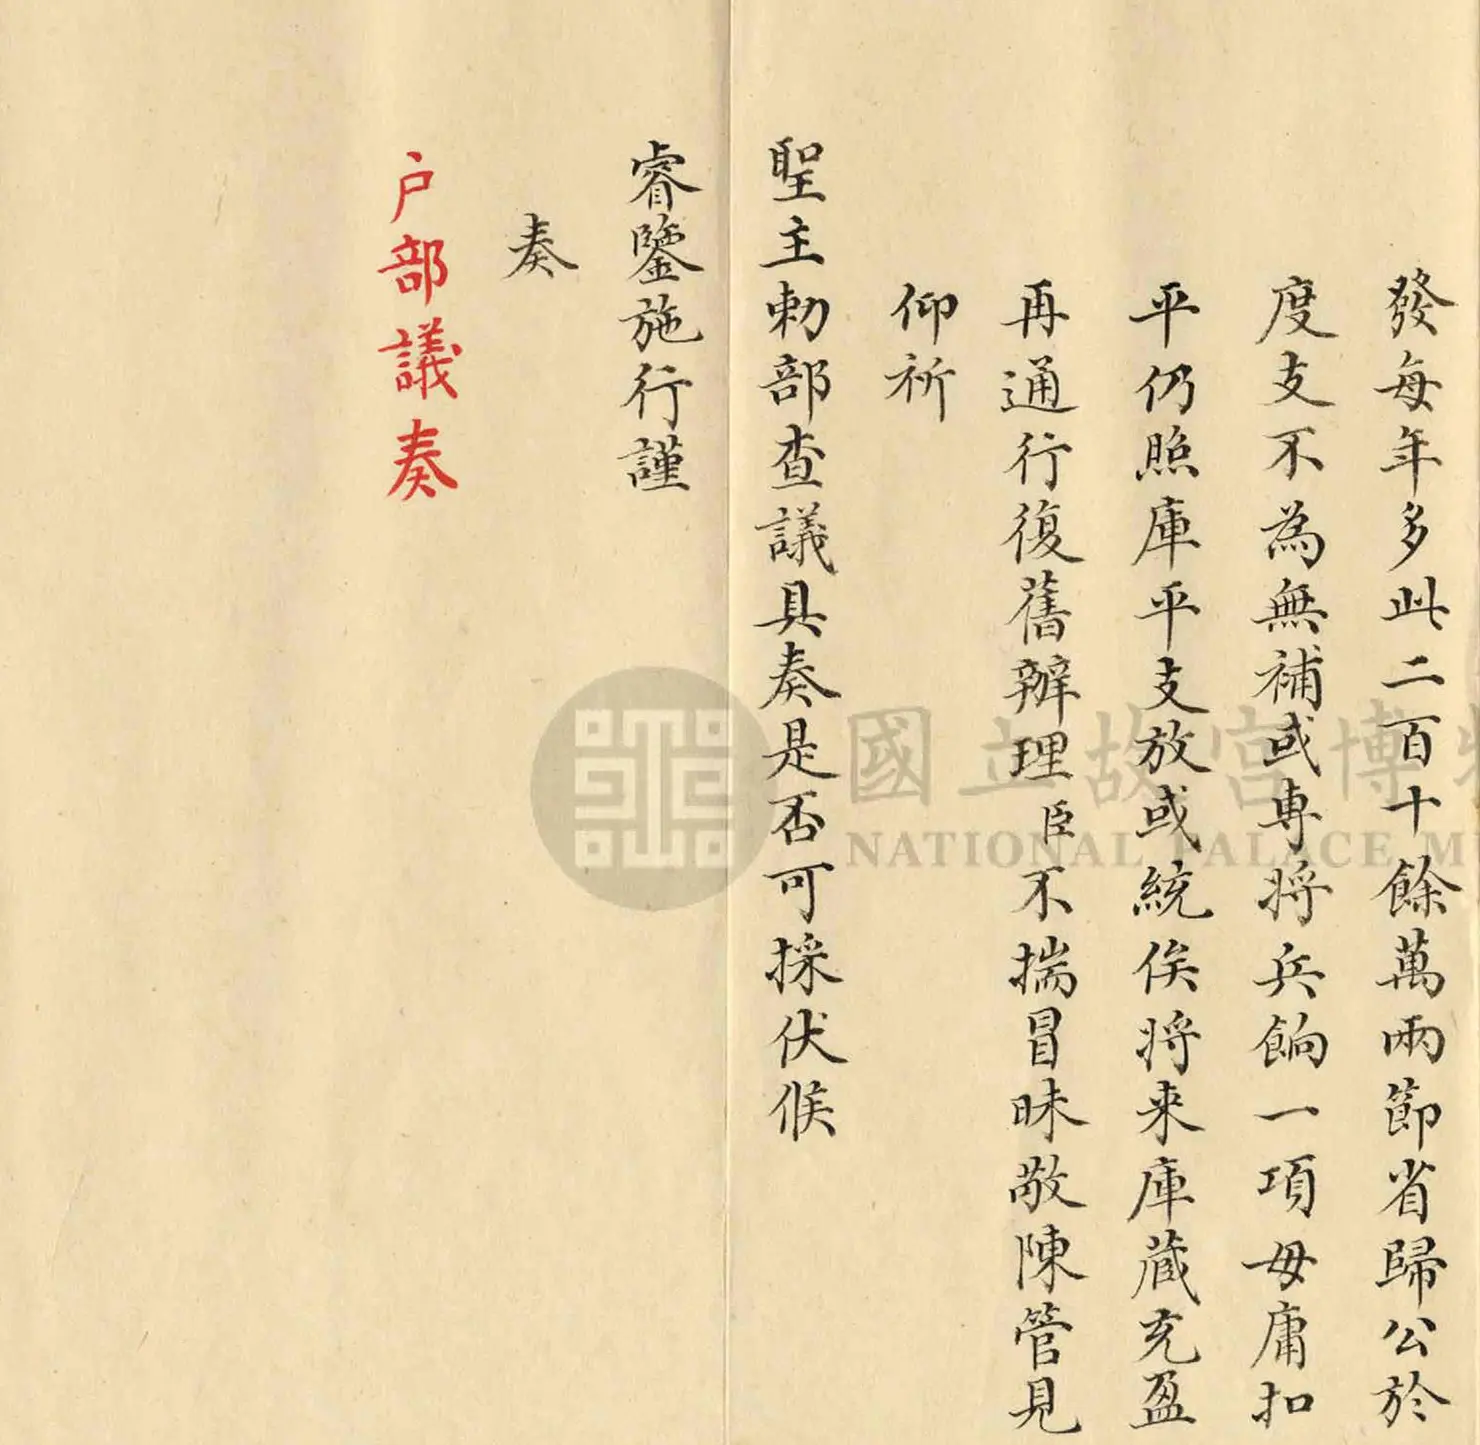 發每年多此二百十餘萬兩節省歸公於
度支不為無補或專將兵餉一項毋庸扣
平仍照庫平支放或統俟將来庫藏充盈
再通行復舊辦理臣不揣冒昧敬陳管見
仰祈
聖主勅部查議具奏是否可採伏候
睿鑒施行謹
奏
户部議奏
國立故宮博物
NATIONAL PALACE M